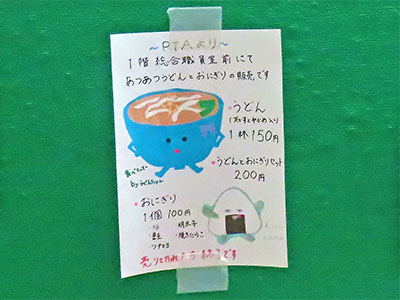 ～PTAより～
1階総合職員室前にて
あつあつうどんとおにぎりの販売です
・うどん
1杯150円
・うどんとおにぎりセット
200円
食べてね〜
by うどんちゃん
・おにぎり
1個100円
・梅 ・明太子
・鮭 ・焼きたらこ
・ツナマヨ
売りきれたら終了です